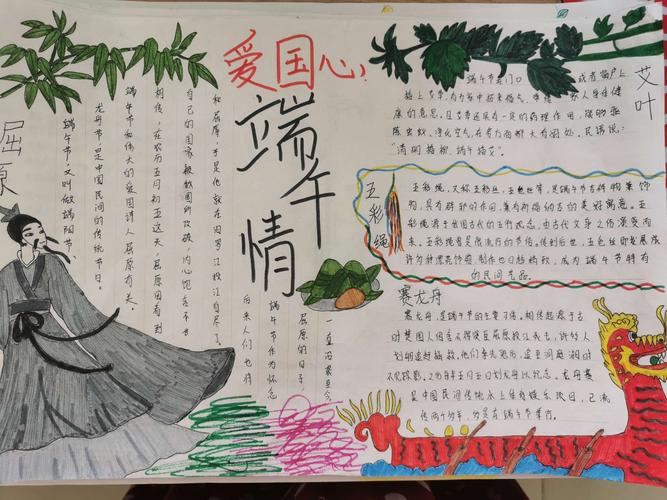 爱国心
端午情
屈原
端午节，又叫做端阳节、
龙舟节，是中国民间的传统节日。
端午节和伟大的爱国诗人屈原有关。
相传，在农历五月初五这天，屈原因看到
自己的国家被敌国所攻破，内心饱含不甘
和屈辱，于是他就在汨罗江投江自尽了。
后来人们也将
端午节作为怀念
屈原的日子，
一直沿袭至今
艾叶
端午节 门口 或者窗户上
插上艾草，有为家中招来福气、带给 家人身体健
康的意思。且艾香还具有一定的药理作用，能够驱
除虫蚁、净化空气，在 方面都大有好处。民谚说：
“清明插柳，端午插艾”
五彩绳
五彩绳，又称五彩丝，五色丝等，是端午节吉祥物集饰
物，具有辟邪的作用，兼有祈福纳吉的美好寓意。五
彩绳源于我国古代的五行观念，由古代文身之俗演变而
来。五彩绳曾是很流行的节俗，传到后世，五色丝即发展成
许为 饰物 制作也日趋精致，成为端午节特有
的民间艺品。
赛龙舟
赛龙舟，是端午节的主要习俗。相传起源于古
时楚国人因舍不得贤臣屈原投江死去，许多人
划船追赶拯救。他们争先恐后，追至洞庭湖时
不见踪影。之后每年五月五日划龙舟以纪念。龙舟赛
是中国民间传统水上体育娱乐项目，已流
传两千多年，多是在端午节举行。